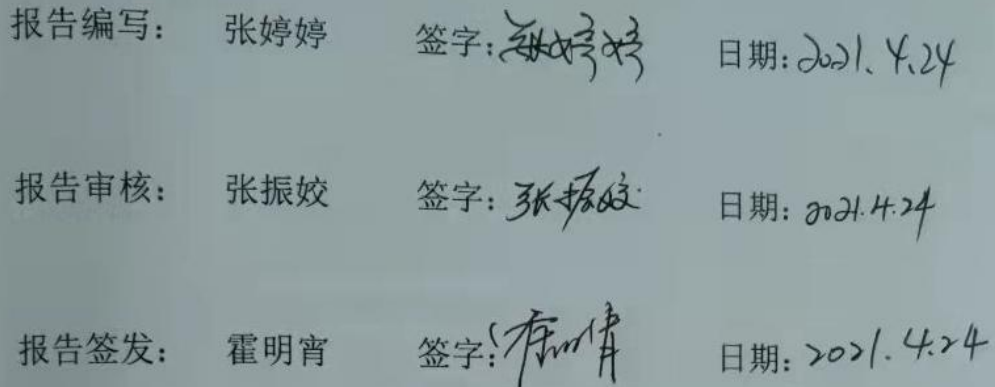 报告编写： 张婷婷 签字：张婷婷 日期：2021.4.24
报告审核： 张振姣 签字：张振姣 日期：2021.4.24
报告签发： 霍明宵 签字： 日期：2021.4.24